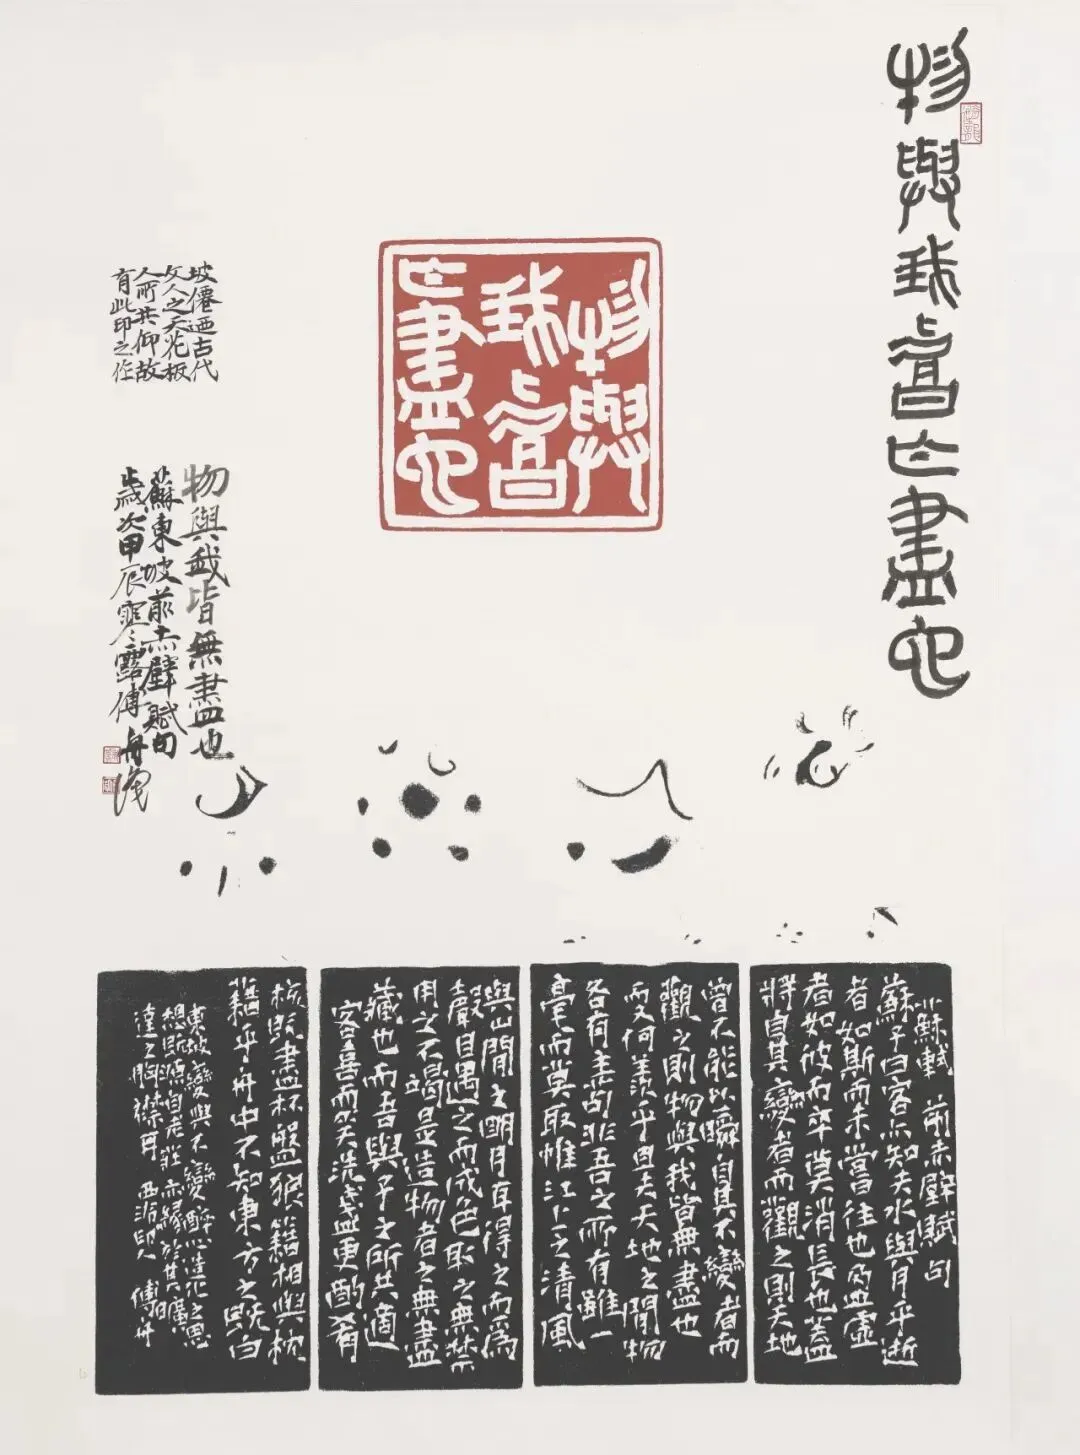 物與我皆亡盡也
物與
我皆
亡盡也
坡僊迺古代
文人之天花板
人所共仰故
有此印之作
物與我皆無盡也
蘇東坡前赤壁賦句
歲次甲辰寒露傅舟
蘇軾 前赤壁賦句
蘇子曰客亦知夫水與月乎逝
者如斯而未嘗往也盈虛
者如彼而卒莫消長也蓋
將自其變者而觀之則天地
曾不能以瞬自其不變者而
觀之則物與我皆無盡也
而又何羨乎且夫天地之間物
各有主苟非吾之所有雖一
毫而莫取惟江上之清風
與山間之明月耳得之而爲
聲目遇之而成色取之無禁
用之不竭是造物者之無盡
藏也而吾與子之所共適
客喜而笑洗盞更酌肴
核既盡杯盤狼籍相與枕
藉乎舟中不知東方之既白
東坡變與不變 造化之思
想既源自老莊亦緣於其曠
達之胸襟耳 西泠印人 傅舟